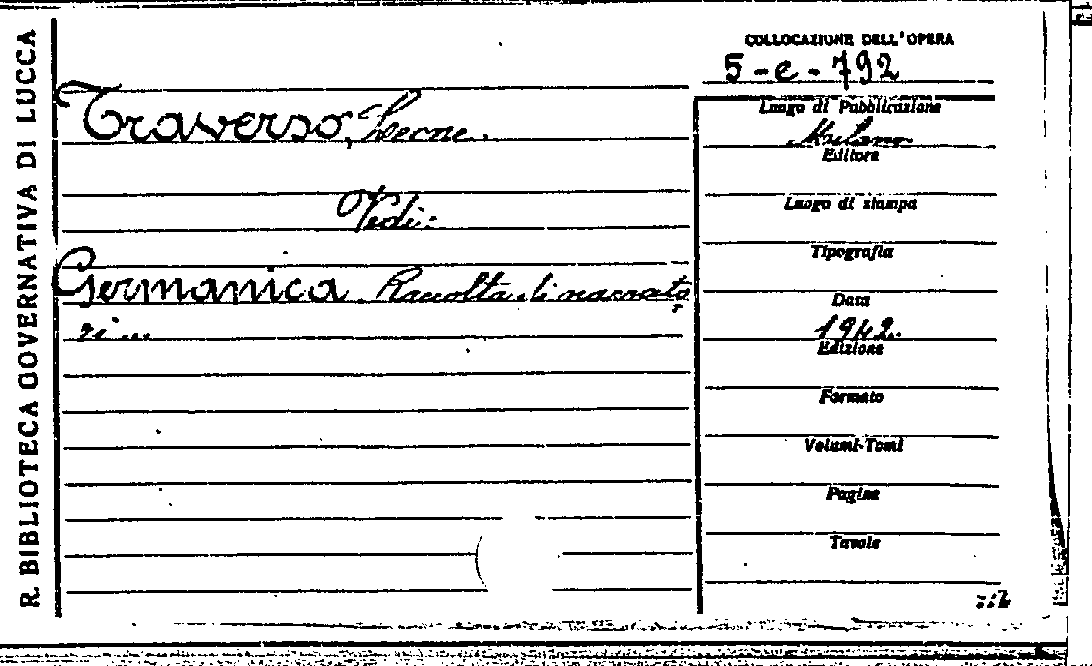 R. BIBLIOTECA GOVERNATIVA DI LUCCA
COLLOCAZIONE DELL'OPERA
5-e-792
Traverso, Leone.
Vedi:
Germanica. Raccolta di narrato
ri...
Luogo di Pubblicazione
Milano
Editore
Luogo di stampa
Tipografia
Data
1942.
Edizione
Formato
Volumi-Tomi
Pagine
Tavole